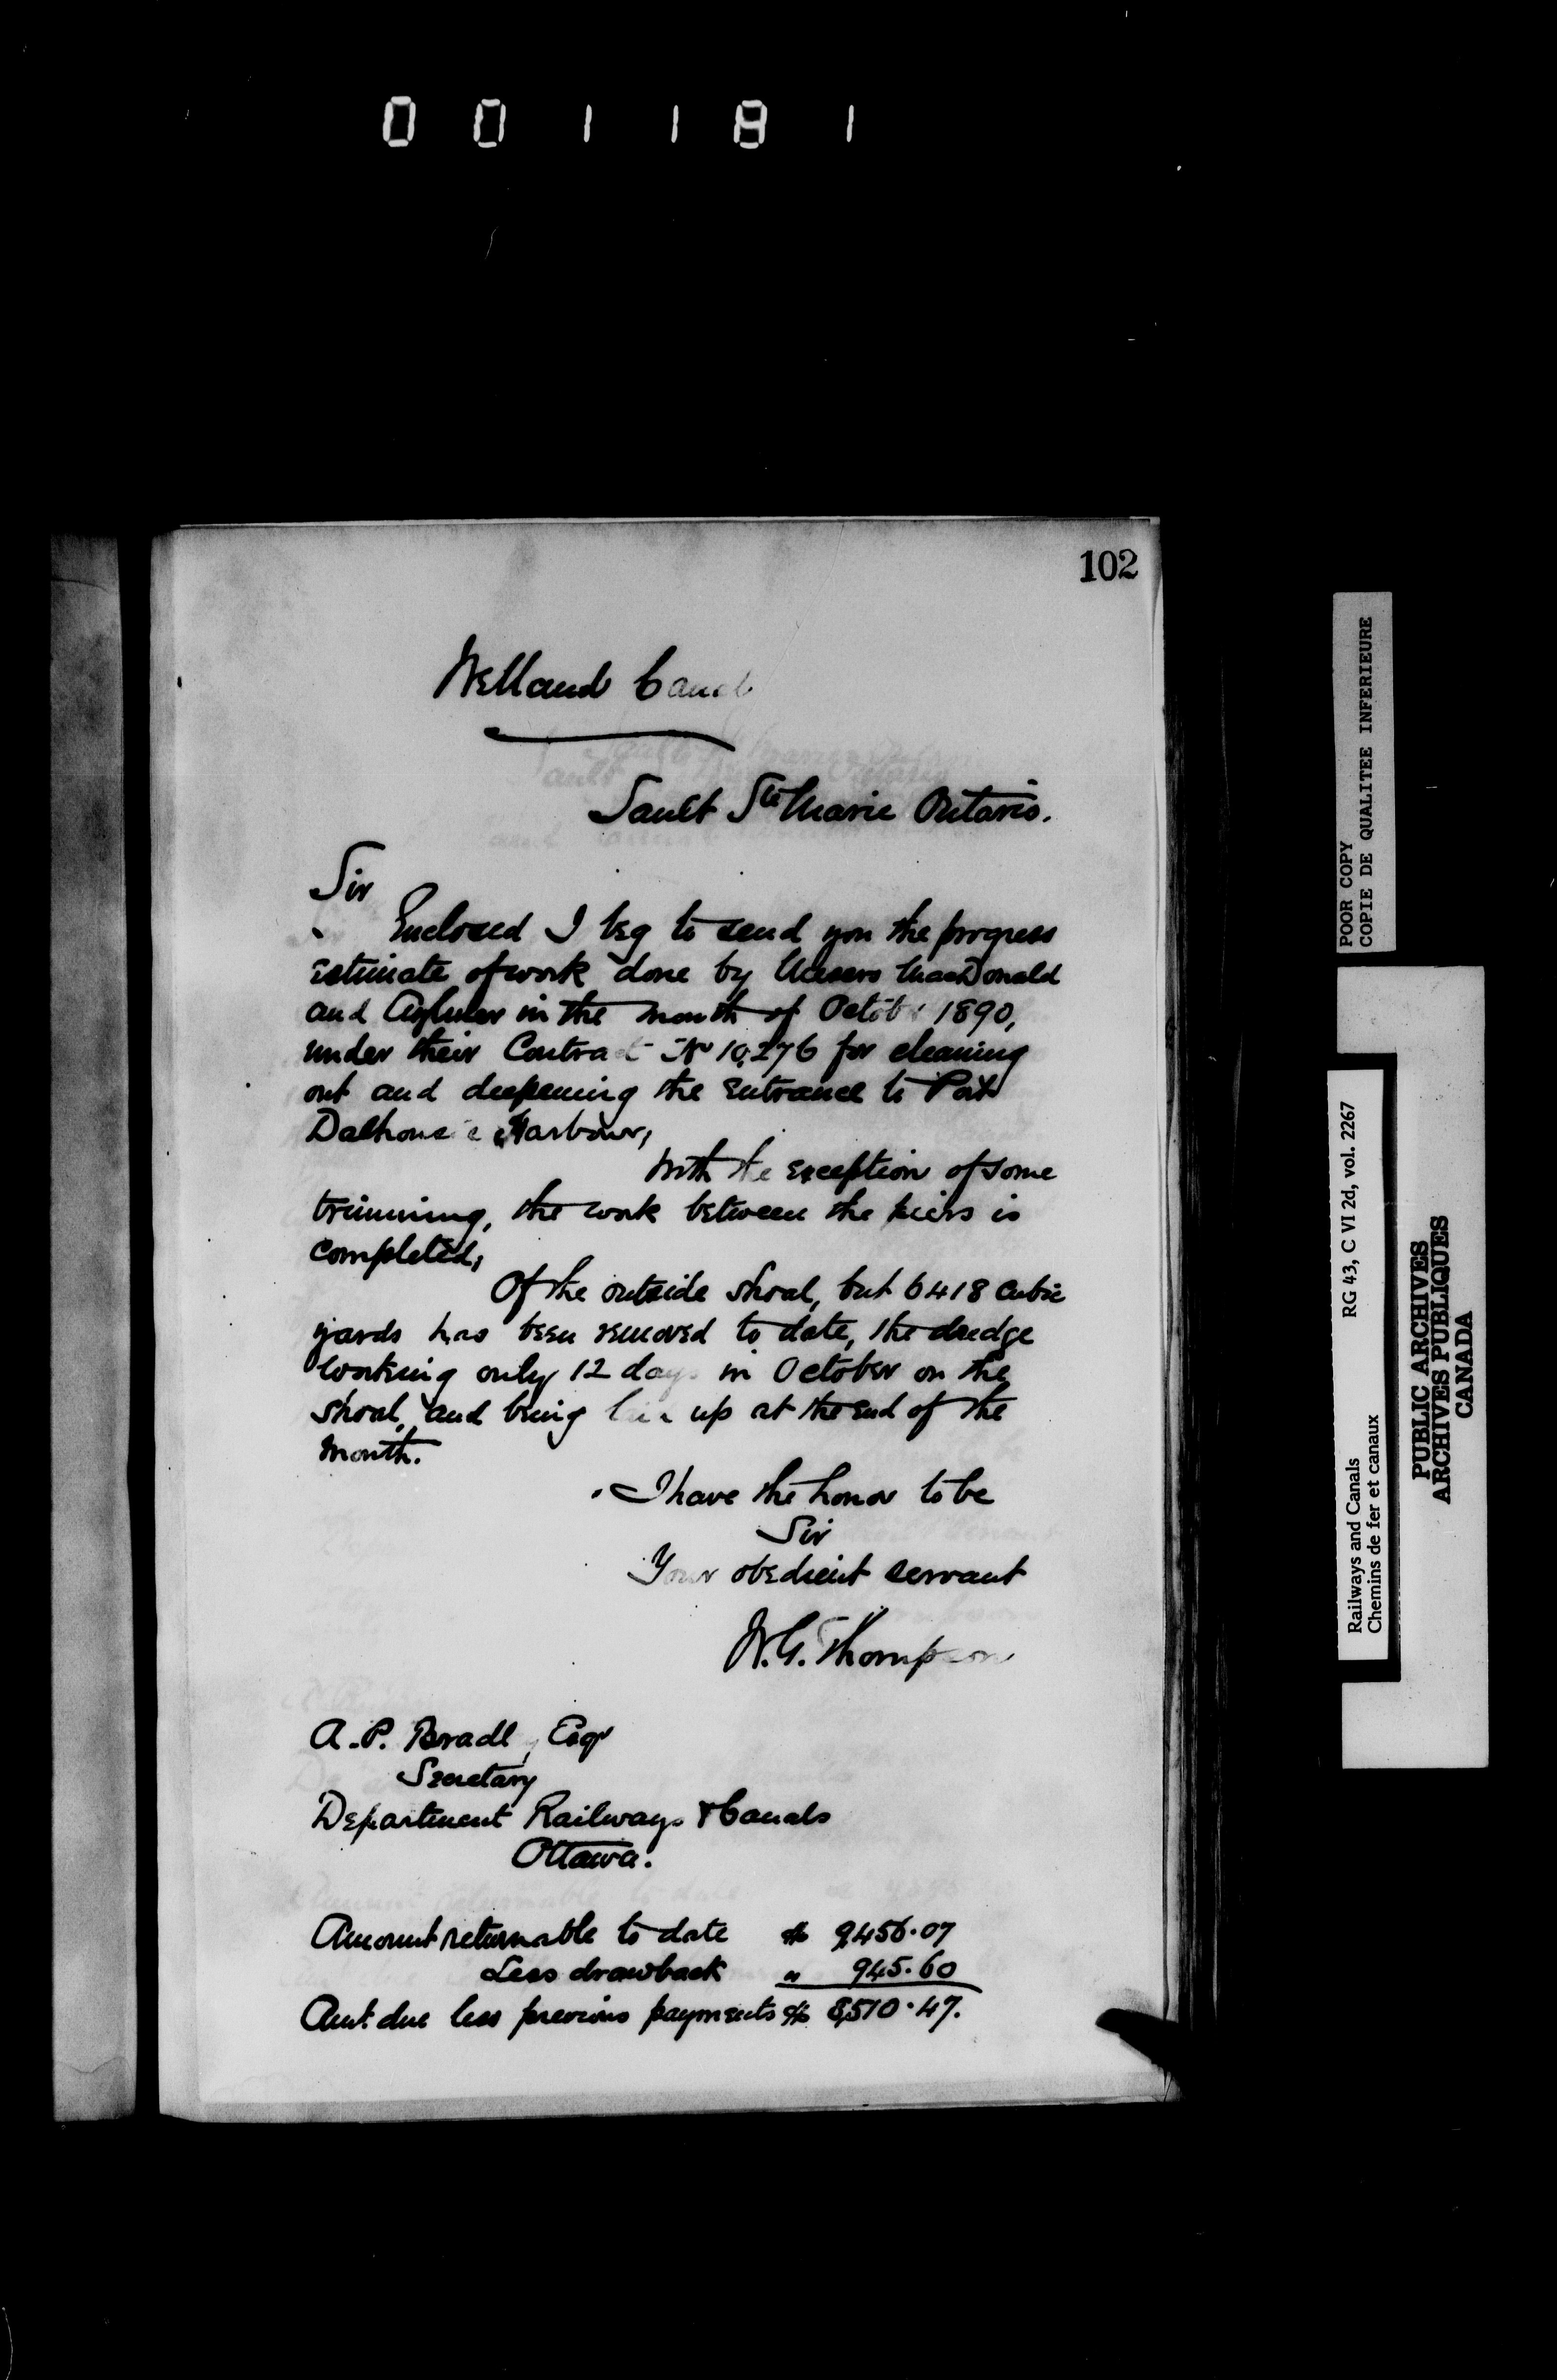 001181
102
Welland Canal
Sault Ste Marie Ontario.
Sir
Enclosed I beg to send you the progress
estimate of work done by Messrs MacDonald
and Aylmer in the month of October 1890,
under their Contract No 10,276 for cleaning
out and deepening the entrance to Port
Dalhousie Harbour,
With the exception of some
trimming, the work between the piers is
completed,
Of the outside shoal, but 6418 cubic
yards has been removed to date, the dredge
working only 12 days in October on the
shoal, and being laid up at the end of the
month.
I have the honor to be
Sir
Your obedient servant
W.G. Thompson
A.P. Bradley Esqr
Secretary
Department Railways & Canals
Ottawa.
Amount returnable to date $ 9,456.07
Less drawback " 945.60
Amt. due less previous payments $ 8,510.47.
POOR COPY
COPIE DE QUALITEE INFERIEURE
Railways and Canals RG 43, C VI 2d, vol. 2267
Chemins de fer et canaux
PUBLIC ARCHIVES
ARCHIVES PUBLIQUES
CANADA